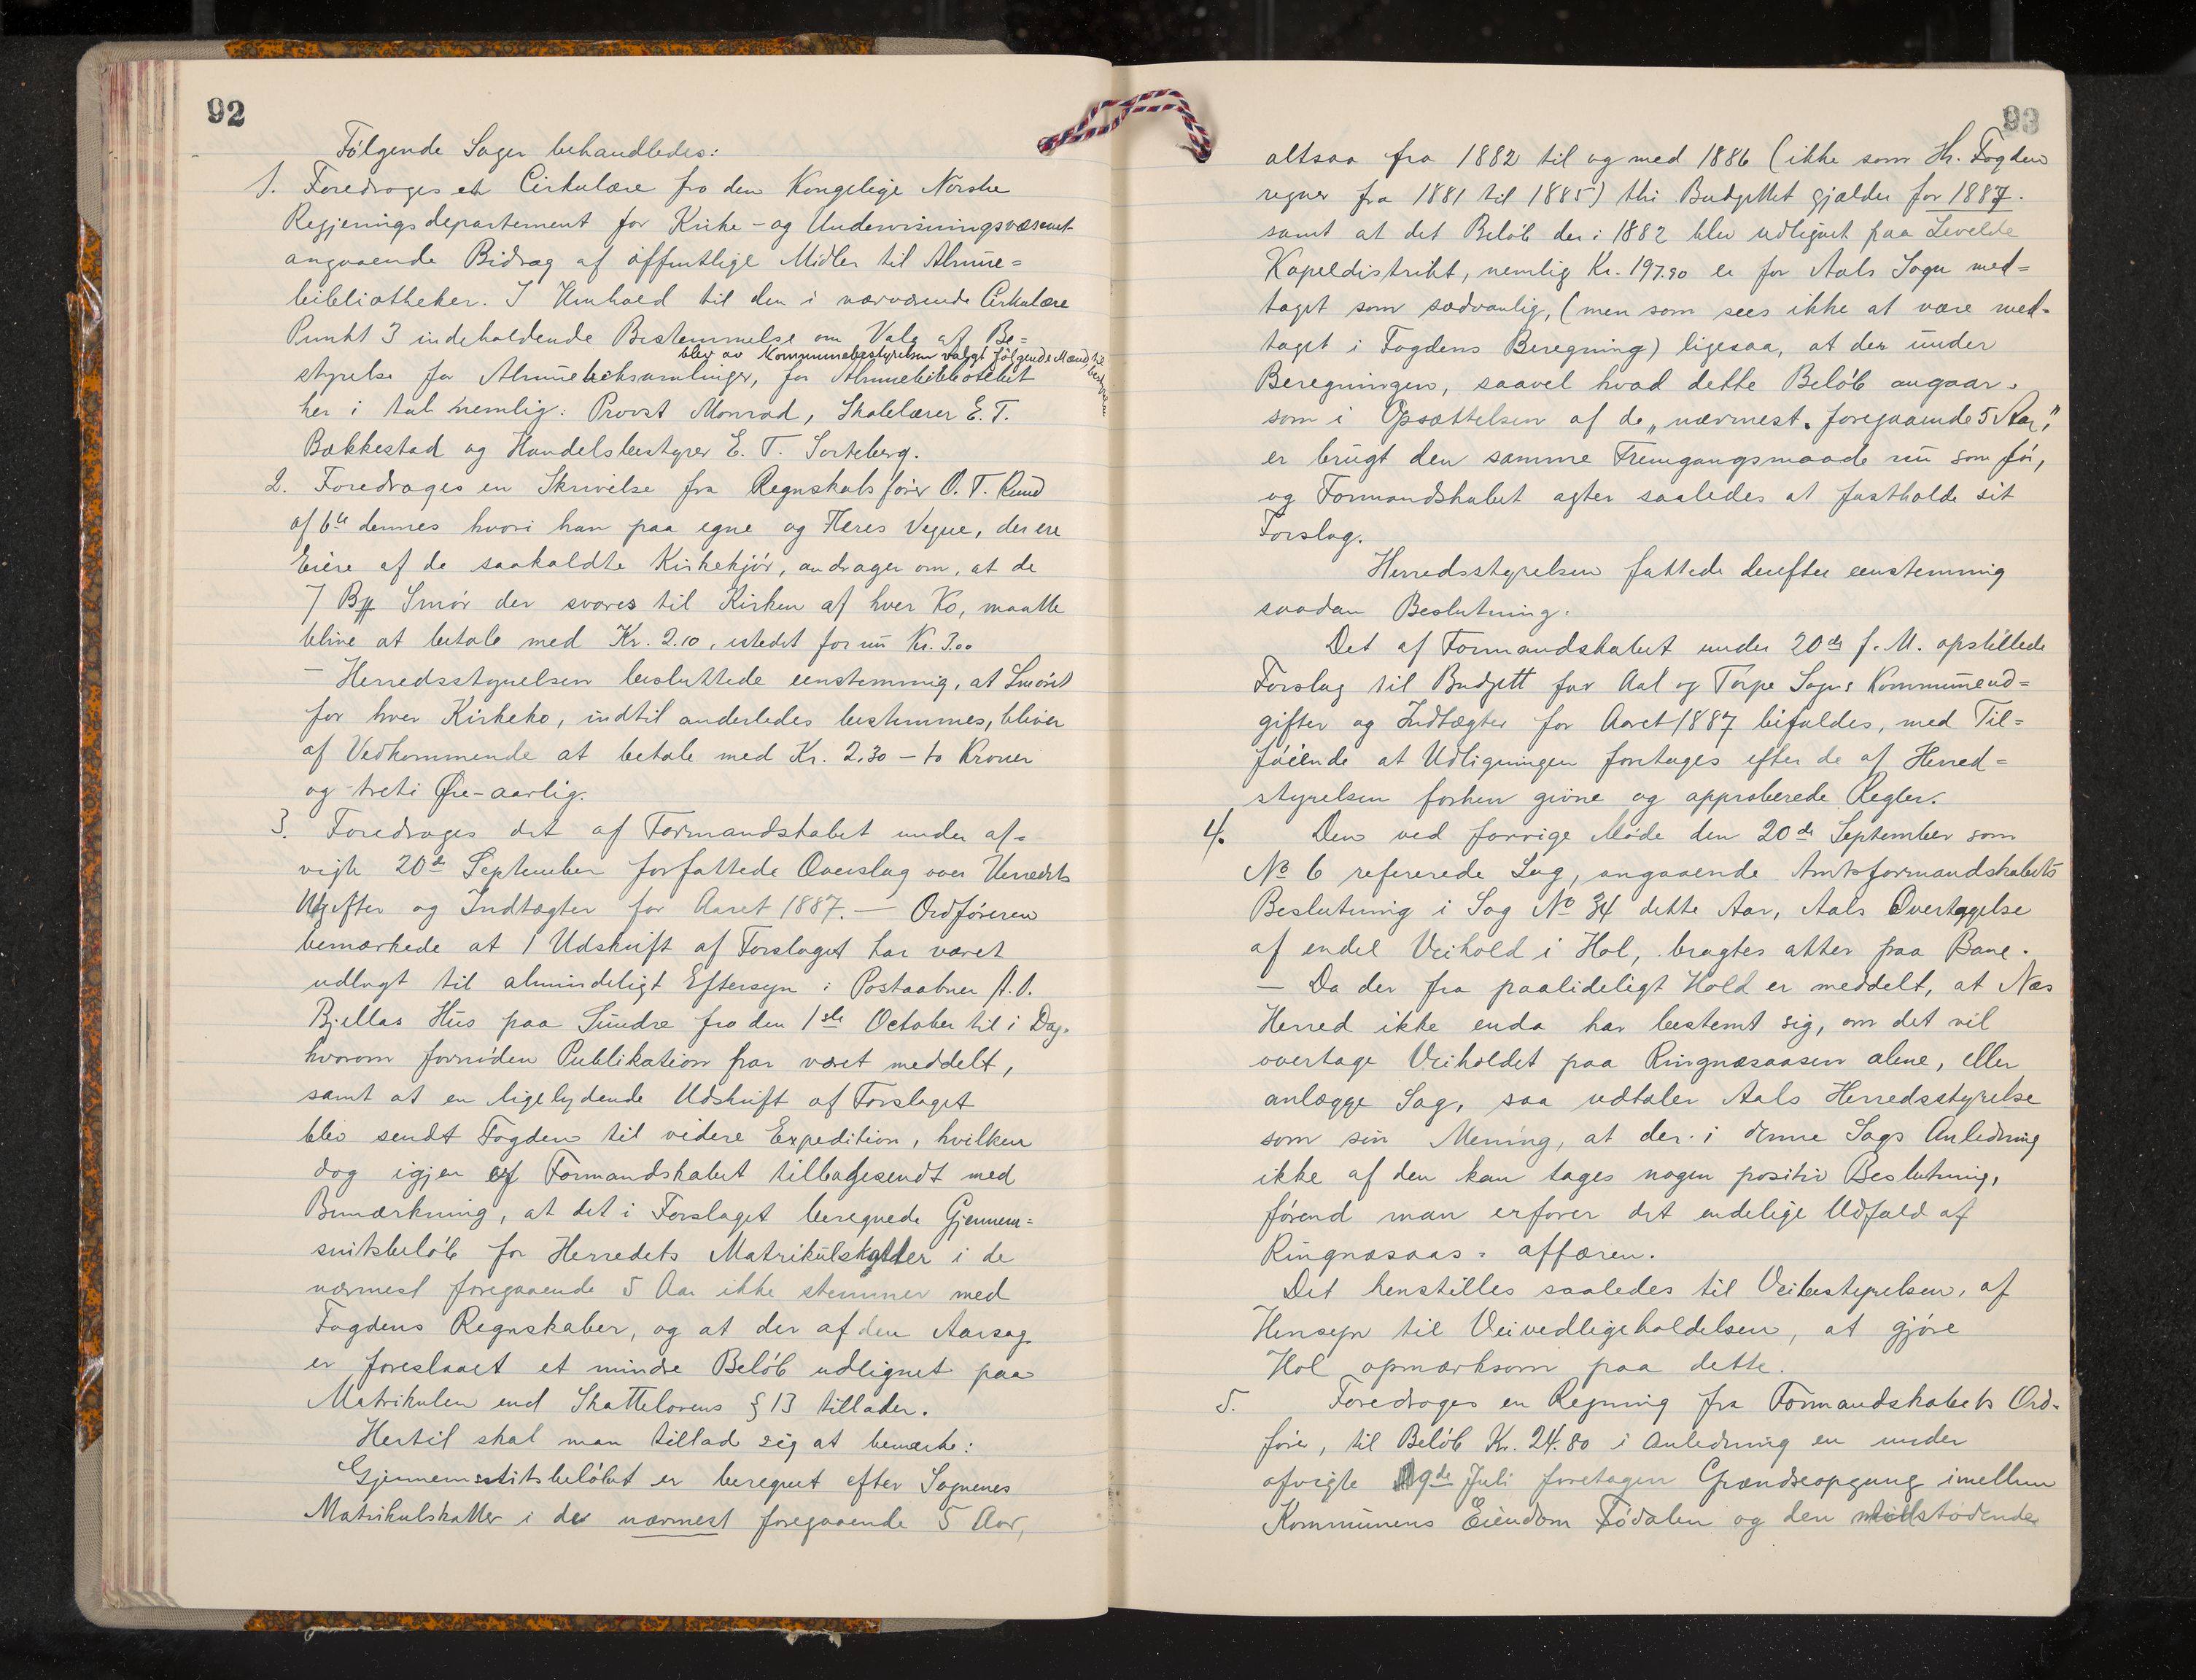 92
Følgende Sager behandledes:
1. Foredroges et Cirkulære fra den Kongelige Norske
Regjeringsdepartement for Kirke- og Undervisningsvæsenet
angaaende Bidrag af offentlige Midler til Almue=
bibliotheker. I Henhold til den i nærværende Cirkulære
Punkt 3 indeholdende Bestemmelse om Valg af Be=
blev av Kommunebestyrelsen valgt følgende Mænd til bestyrere
styrelse for Almueboksamlinger, for Almuebibliotheket
her i Aal nemlig: Provst Monrad, Skolelærer E. T.
Bakkestad og Handelsbestyrer E. T. Sorteberg.
2. Foredroges en Skrivelse fra Regnskabsfører O. T. Ruud
af 6te dennes hvori han paa egne og Fleres Vegne, der ere
Eiere af de saakaldte Kirkekjør, andrager om, at de
7 B℔ Smør der svares til Kirken af hver Ko, maatte
blive at betale med Kr. 2.10, istedet for nu Kr. 3.00
– Herredsstyrelsen besluttede eenstemmig, at Smøret
for hver Kirkeko, indtil anderledes bestemmes, bliver
af Vedkommende at betale med Kr. 2.30 – to Kroner
og treti Øre - aarlig.
3. Foredroges det af Formandskabet under af=
vigte 20de September forfattede Overslag over Herredets
Udgifter og Indtægter for Aaret 1887. – Ordføreren
bemærkede at 1 Udskrift af Forslaget har været
udlagt til almindeligt Eftersyn i Postaabner A. O.
Bjellas Hus paa Sundre fra den 1ste October til i Dag.
hvorom fornøden Publikation har været meddelt,
samt at en ligelydende Udskrift af Forslaget
blev sendt Fogden til videre Expedition, hvilken
dog igjen af Formandskabet tilbagesendt med
Bemærkning, at det i Forslaget beregnede Gjennem=
snitsbeløb for Herredets Matrikulskatter i de
nærmest foregaaende 5 Aar ikke stemmer med
Fogdens Regnskaber, og at der af den Aarsag
er foreslaaet et mindre Beløb udlignet paa
Matrikulen end Skattelovens § 13 tillader.
Hertil skal man tillade sig at bemærke:
Gjennemsnitsbeløbet er beregnet efter Sognenes
Matrikulskatter i de nærmest foregaaende 5 Aar,
93
altsaa fra 1882 til og med 1886 (ikke som Hr. Fogden
regner fra 1881 til 1885) thi Budgettet gjælder for 1887.
samt at det Beløb der i 1882 blev udlignet paa Levelde
Kapeldistrikt, nemlig Kr. 197.90 er for Aals Sogn med=
taget som sædvanlig, (men som sees ikke at være med=
taget i Fogdens Beregning) ligesaa, at der under
Beregningen, saavel hvad dette Beløb angaar.
som i Opsættelsen af de „nærmest foregaaende 5 Aar,"
er brugt den samme Fremgangsmaade nu som før,
og Formandskabet agter saaledes at fastholde sit
Forslag.
Herredsstyrelsen fattede derefter eenstemmig
saadan Beslutning.
Det af Formandskabet under 20de f. M. opstillede
Forslag til Budgett for Aal og Torpe Sogns Kommuneud=
gifter og Indtægter for Aaret 1887 bifaldes, med Til=
føiende at Udligningen foretages efter de af Herred=
styrelsen forhen givne og approberede Regler.
4. Den ved forrige Møde den 20de September som
No 6 refererede Sag, angaaende Amtsformandskabets
Beslutning i Sag No 34 dette Aar, Aals Overtagelse
af endel Veihold i Hol, bragtes atter paa Bane.
– Da der fra paalideligt Hold er meddelt, at Næs
Herred ikke enda har bestemt sig, om det vil
overtage Veiholdet paa Ringnæsaasen alene, eller
anlægge Sag, saa udtaler Aals Herredsstyrelse
som sin Mening, at der i denne Sags Anledning
ikke af den kan tages nogen positiv Beslutning,
førend man erfarer det endelige Udfald af
Ringnæsaas=affæren.
Det henstilles saaledes til Veibestyrelsen, af
Hensyn til Veivedligeholdelsen, at gjøre
Hol opmærksom paa dette.
5. Foredroges en Regning fra Formandskabets Ord=
fører, til Beløb Kr. 24.80 i Anledning en under
afvigte 9de Juli foretagen Grændseopgang imellem
Kommunens Eiendom Fødalen og den tilstødende